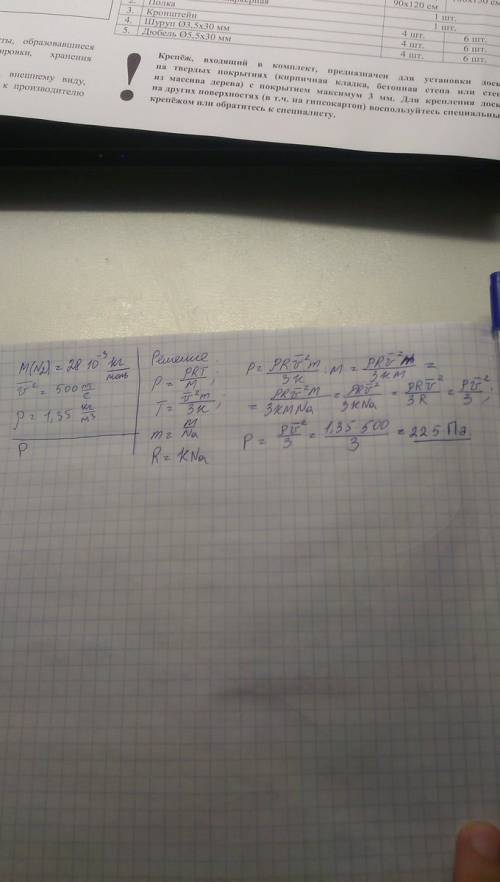 2. Полка
90х120 см
3. Кронштейн 1 шт.
4. Шуруп Ø3,5х30 мм 1 шт.
5. Дюбель Ø5,5х30 мм 4 шт. 6 шт.
4 шт. 6 шт.
4 шт. 6 шт.
образовавшиеся
хранения
внешнему виду,
к производителю
!
Крепёж, входящий в комплект, предназначен для установки
на твердых покрытиях (кирпичная кладка, бетонная стена или
из массива дерева) с покрытием максимум 3 мм. Для крепления
на других поверхностях (в т.ч. на гипсокартон) воспользуйтесь
крепёжом или обратитесь к специалисту.
M(N₂) = 28 10⁻³ кг/моль
v̄² = 500 м/с
ρ = 1,35 кг/м³
P
Решение
P = ρRT/M;
T = v̄²m/3k;
m = M/Na
R = kNa
P = ρRv̄²m/3k : M = ρRv̄²m/3kM =
= ρRv̄²M/3kMNa = ρRv̄²/3kNa = ρRv̄²/3R = ρv̄²/3;
P = ρv̄²/3 = 1,35 500/3 = 225 Па